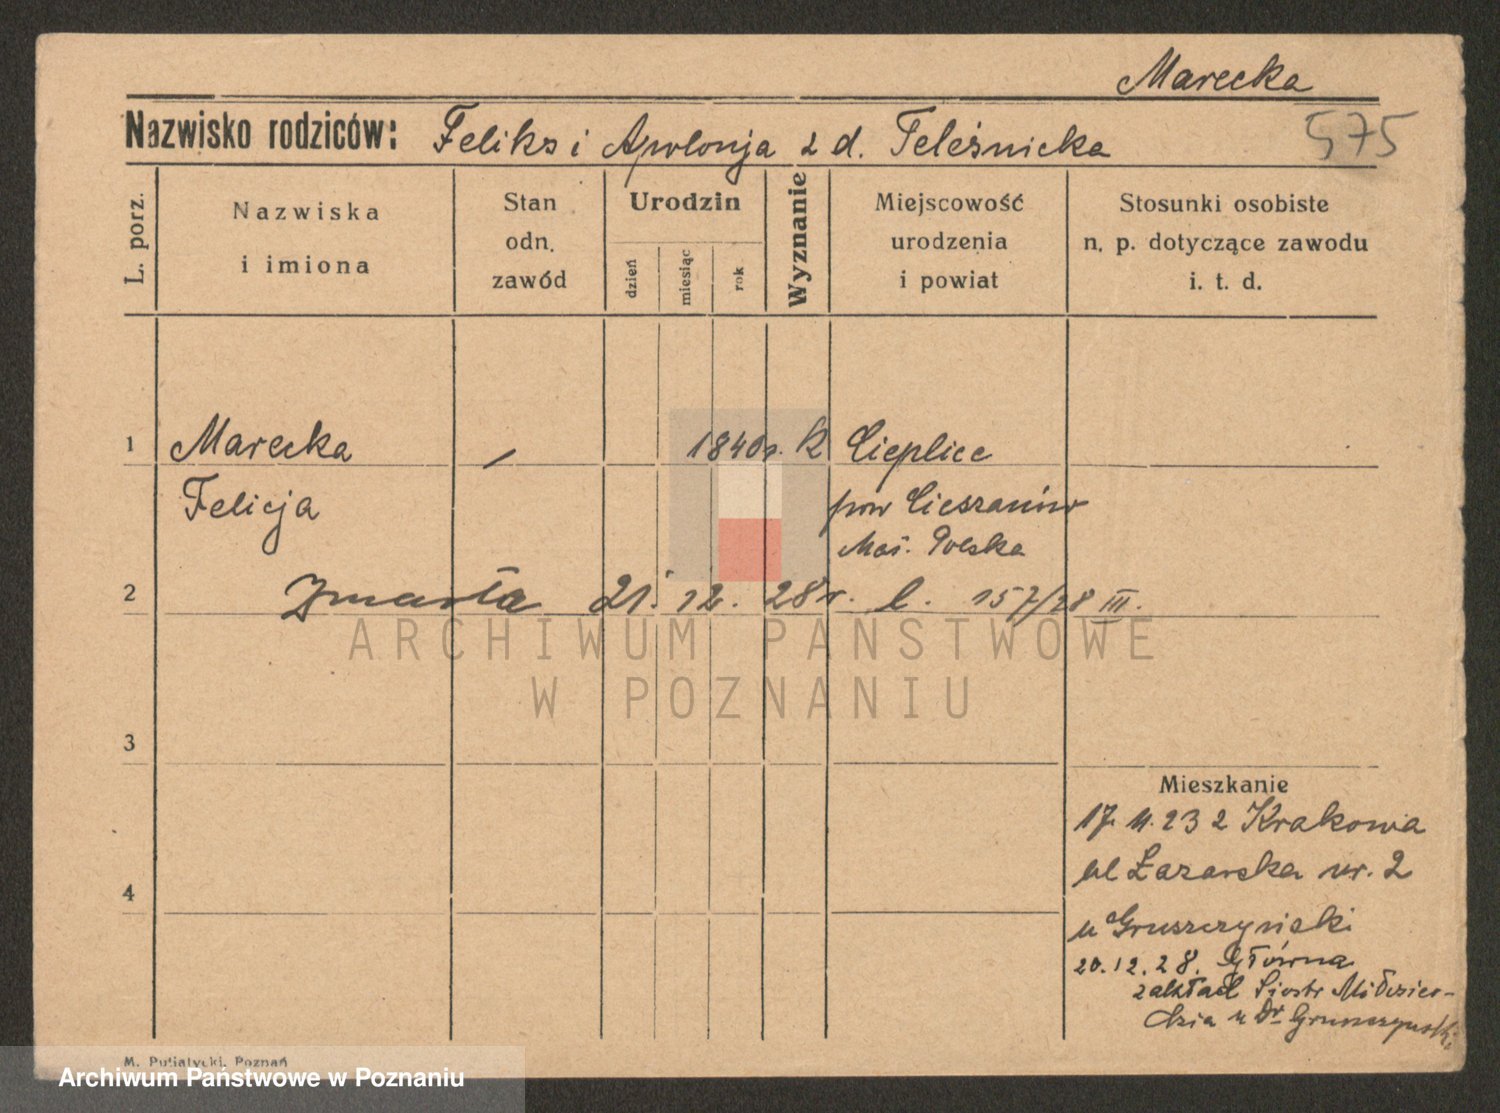 Marecka
Nazwisko rodziców: Feliks i Apolonja z d. Teleśnicka
575
L. porz.
Nazwiska
i imiona
Stan
odn.
zawód
Urodzin
dzień
miesiąc
rok
Wyznanie
Miejscowość
urodzenia
i powiat
Stosunki osobiste
n. p. dotyczące zawodu
i. t. d.
1 Marecka — 1840r. k Cieplice
Felicja pow Cieszanów
Mał. Polska
2 Zmarła 21. 12. 28r. l. 157/28 III.
ARCHIWUM PAŃSTWOWE
W POZNANIU
3
Mieszkanie
17. 11. 23 z Krakowa
ul Łazarska nr. 2
4
u Gruszczyński
20.12.28. Główna
zakład Siostr Miłosier-
dzia u Dr Gruszczyński
M. Putiatycki, Poznań
Archiwum Państwowe w Poznaniu